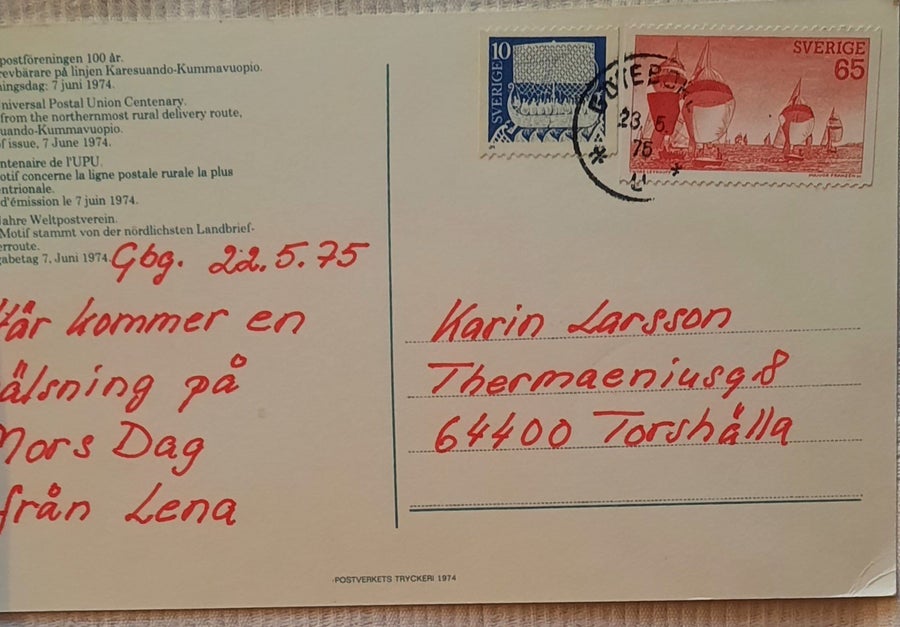 postföreningen 100 år.
revbärare på linjen Karesuando-Kummavuopio.
ningsdag: 7 juni 1974.
niversal Postal Union Centenary.
from the northernmost rural delivery route,
uando-Kummavuopio.
of issue, 7 June 1974.
ntenaire de l'UPU.
otif concerne la ligne postale rurale la plus
entrionale.
d'émission le 7 juin 1974.
Jahre Weltpostverein.
Motif stammt von der nördlichsten Landbrief-
erroute.
gabetag 7. Juni 1974.
Gbg. 22.5.75
Här kommer en
älsning på
Mors Dag
från Lena
SVERIGE 10
SVERIGE
65
GÖTEBORG
23.5.
75
Karin Larsson
Thermaeniusg 8
64400 Torshälla
POSTVERKETS TRYCKERI 1974